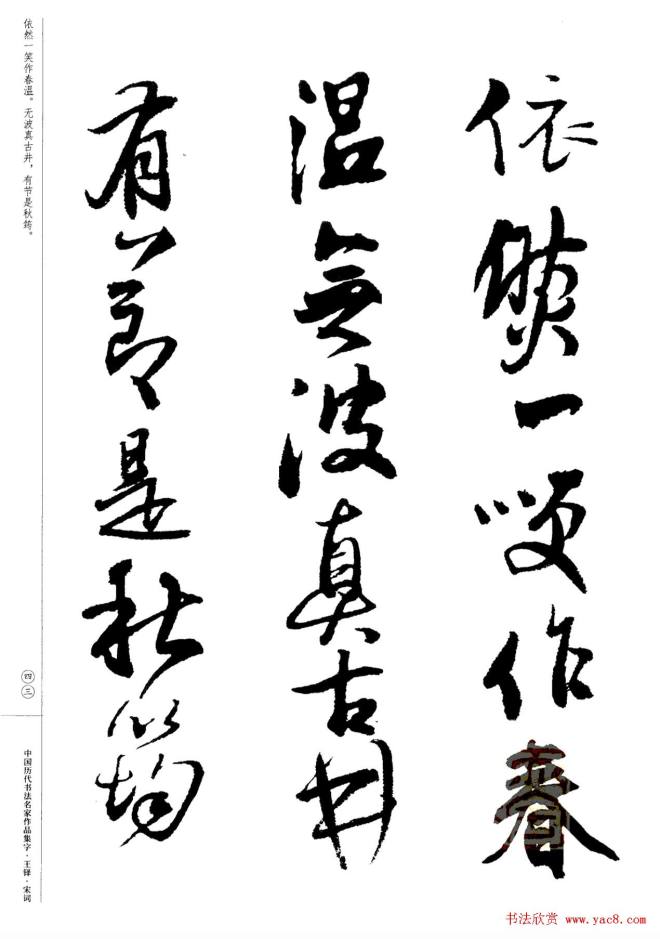 依然一笑作春
温無波真古井
有節是秋筠
依然一笑作春温。无波真古井，有节是秋筠。
四三
中国历代书法名家作品集字·王铎·宋词
书法欣赏 www.yac8.com